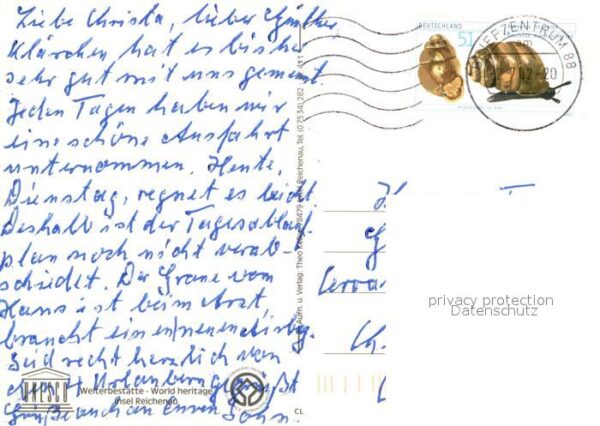 Liebe Christa, lieber Günther
Klärchen hat es bisher
sehr gut mit uns gemeint.
Jeden Tagen haben wir
eine schöne Ausfahrt
unternommen. Heute,
Dienstag, regnet es leicht.
Deshalb ist der Tagesablauf-
plan noch nicht verab-
schiedet. Der Grane vom
Hans ist beim Arzt
braucht einen neuen
Seid recht herzlich von
gegrüßt
Grüße auch an Euren Sohn.
DEUTSCHLAND
51
BRIEFZENTRUM 88
02-20
Aufn. u. Verlag: Theo Keller, 78479 Insel Reichenau, Tel. (0 75 34) 282
UNESCO
Welterbestätte - World heritage
Insel Reichenau
CL
privacy protection
Datenschutz